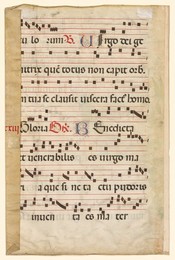 lo rum ℟. Virgo dei ge
nitrix quē totus non capit orb.
in tua se clausit viscera fact' homo.
Gloria Benedicta
et venerabilis es virgo ma
a que si ne ta ctu pudoris
inven ta es ma ter